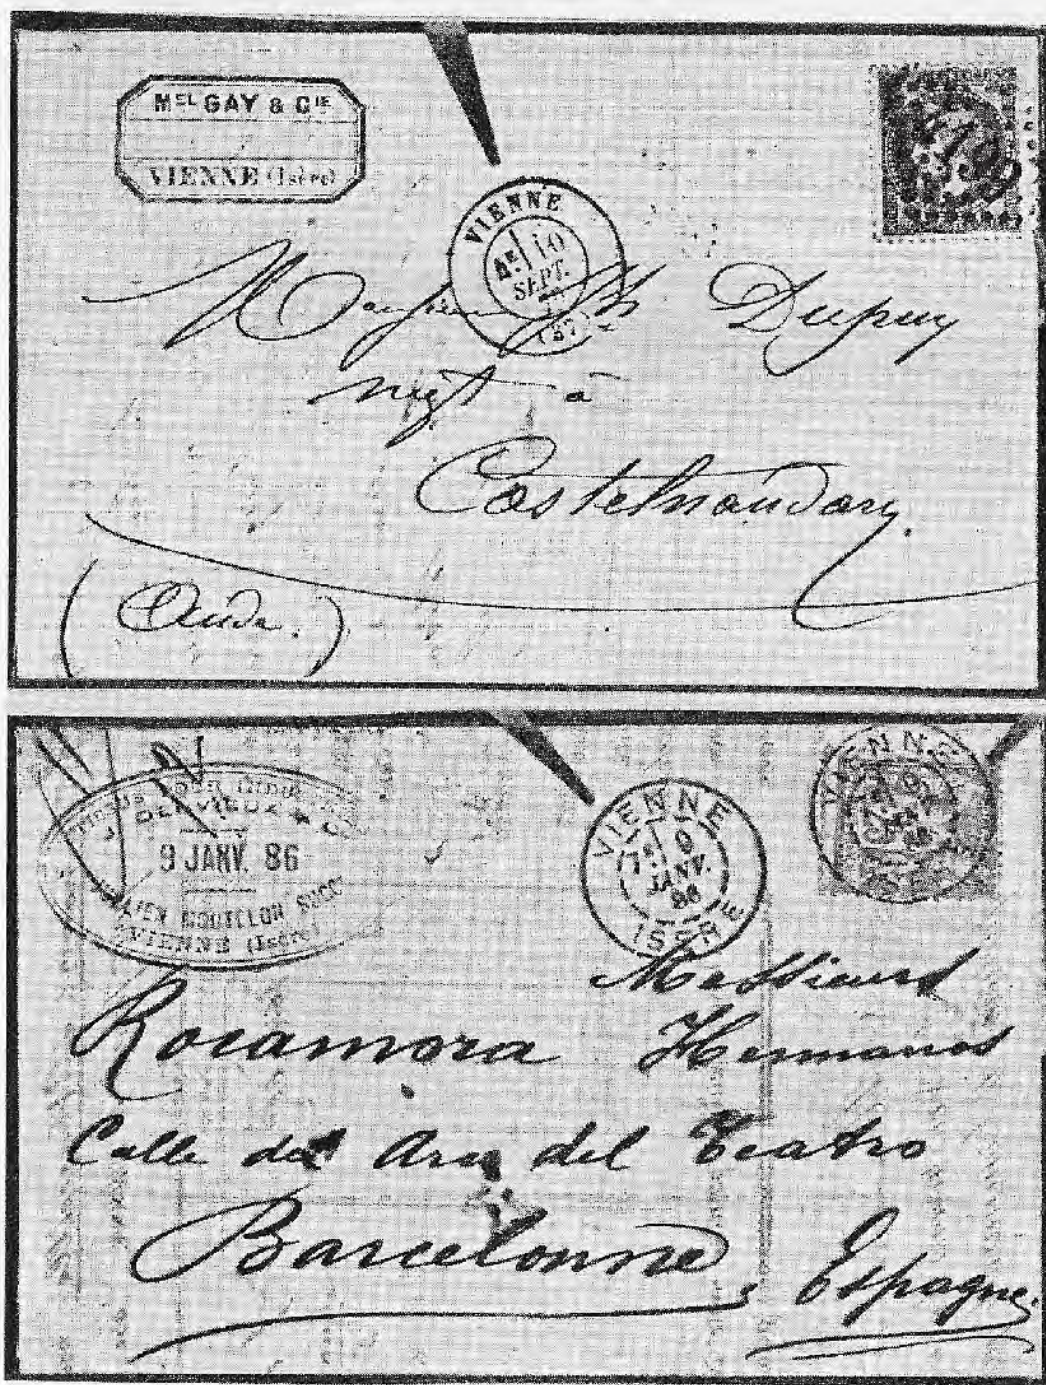 MEL GAY & CIE
VIENNE (Isère)
VIENNE
4E 10
SEPT.
(37)
Monsieur Dupuy
négt à
Castelnaudary.
(Aude.)
9 JANV. 86
MOUTELON SUCCR
VIENNE (Isère)
VIENNE
7E 9
JANV.
86
ISÈRE
VIENNE
Messieurs
Rocamora Hermanos
Calle del Arco del Teatro
Barcelonne, Espagne.